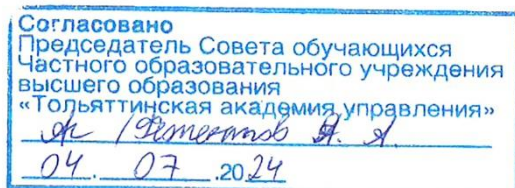 Согласовано
Председатель Совета обучающихся
Частного образовательного учреждения
высшего образования
«Тольяттинская академия управления»
А. А.
04. 07 .2024